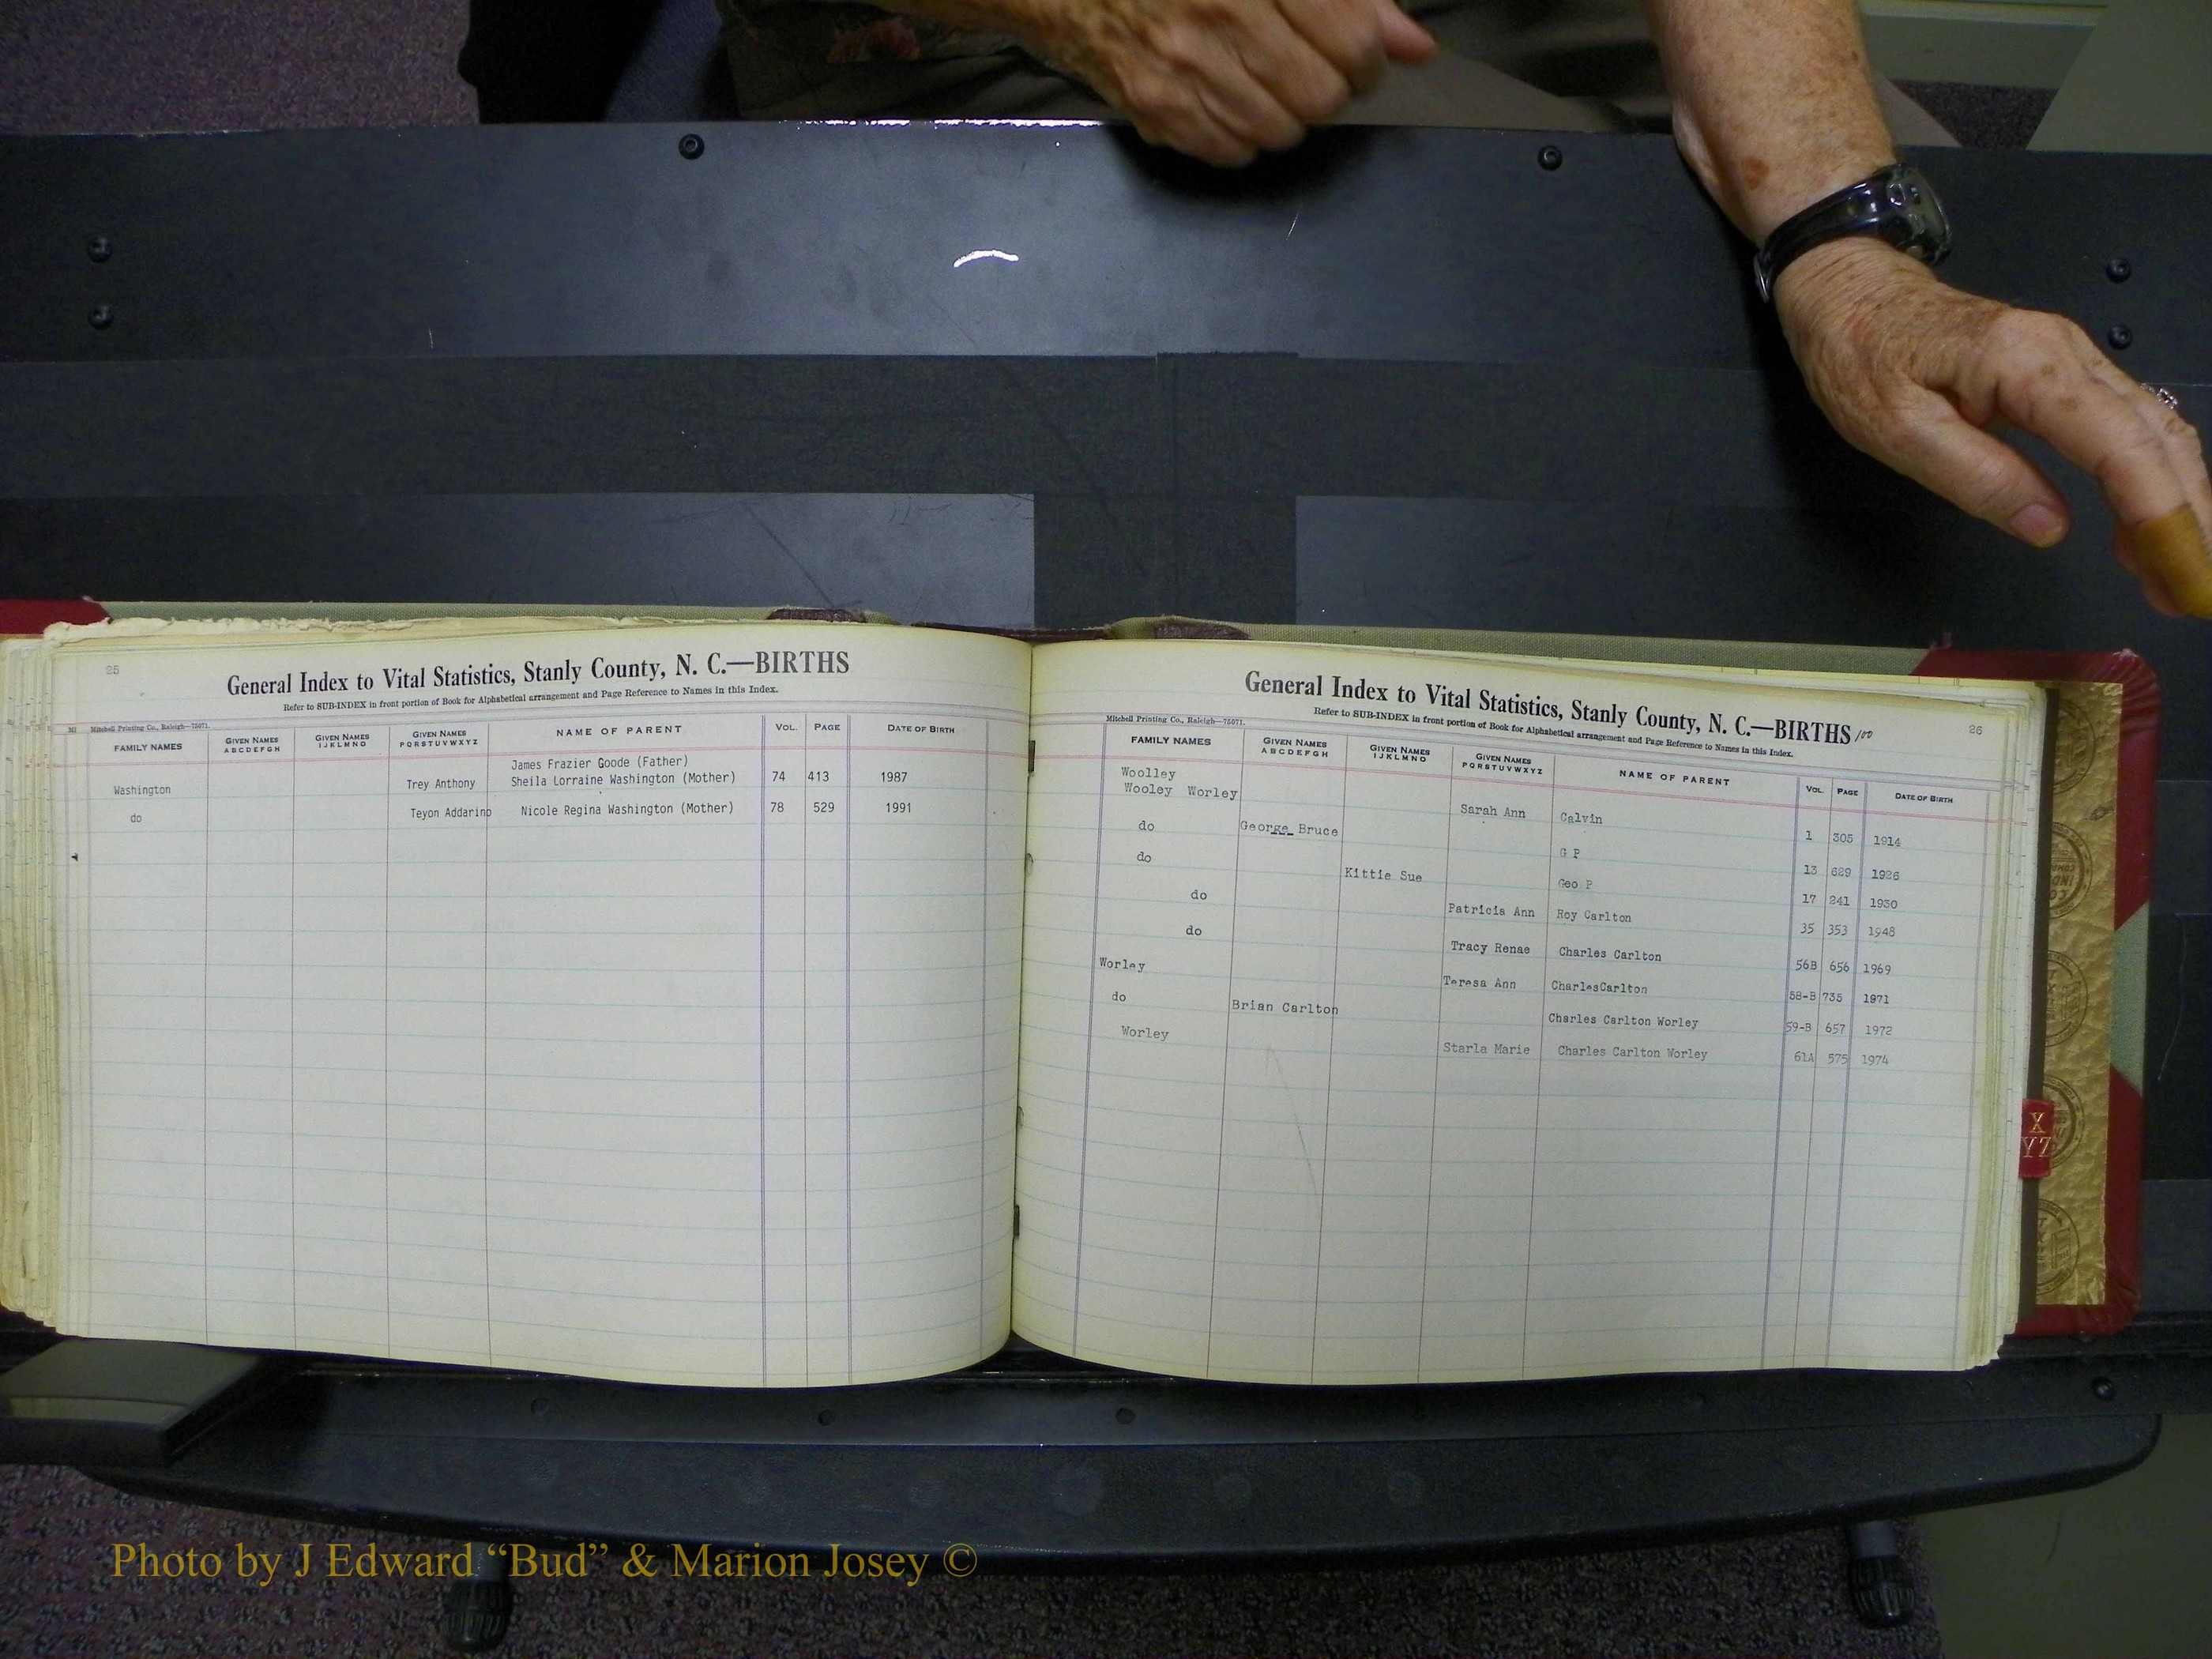 25
General Index to Vital Statistics, Stanly County, N. C.—BIRTHS
Refer to SUB-INDEX in front portion of Book for Alphabetical arrangement and Page Reference to Names in this Index.
MI Mitchell Printing Co., Raleigh—75071.
FAMILY NAMES GIVEN NAMES ABCDEFGH GIVEN NAMES IJKLMNO GIVEN NAMES PQRSTUVWXYZ NAME OF PARENT VOL. PAGE DATE OF BIRTH
James Frazier Goode (Father)
Washington Trey Anthony Sheila Lorraine Washington (Mother) 74 413 1987
do Teyon Addarino Nicole Regina Washington (Mother) 78 529 1991
26
General Index to Vital Statistics, Stanly County, N. C.—BIRTHS 100
Refer to SUB-INDEX in front portion of Book for Alphabetical arrangement and Page Reference to Names in this Index.
Mitchell Printing Co., Raleigh—75071.
FAMILY NAMES GIVEN NAMES ABCDEFGH GIVEN NAMES IJKLMNO GIVEN NAMES PQRSTUVWXYZ NAME OF PARENT VOL. PAGE DATE OF BIRTH
Woolley
Wooley Worley Sarah Ann Calvin 1 305 1914
do George Bruce G P 13 629 1926
do Kittie Sue Geo P 17 241 1930
do Patricia Ann Roy Carlton 35 353 1948
do Tracy Renae Charles Carlton 56B 656 1969
Worley Teresa Ann CharlesCarlton 58-B 735 1971
do Brian Carlton Charles Carlton Worley 59-B 657 1972
Worley Starla Marie Charles Carlton Worley 61A 575 1974
X
YZ
Photo by J Edward “Bud” & Marion Josey ©